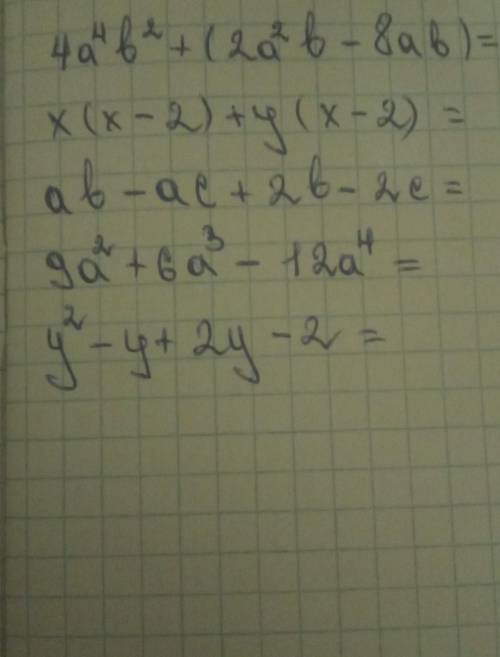 4a⁴b² + (2a²b - 8ab) =
x(x - 2) + y(x - 2) =
ab - ac + 2b - 2c =
9a² + 6a³ - 12a⁴ =
y² - y + 2y - 2 =